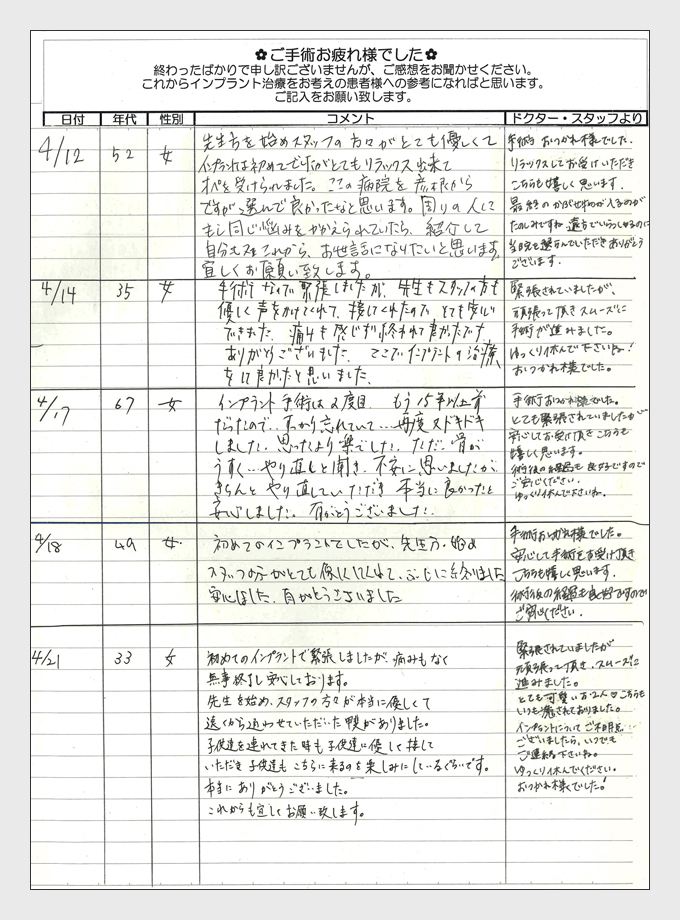 ✿ご手術お疲れ様でした✿
終わったばかりで申し訳ございませんが、ご感想をお聞かせください。
これからインプラント治療をお考えの患者様への参考になればと思います。
ご記入をお願い致します。
日付 年代 性別 コメント ドクター・スタッフより
4/12 52 女
先生方を始めスタッフの方々がとても優しくて
インプラントは初めてでしたがとてもリラックス出来て
オペを受けられました。ここの病院を彦根から
ですが選んで良かったなと思います。周りの人にも
もし同じ悩みをかかえられていたら、紹介して
自分もまたこれから、お世話になりたいと思います。
宜しくお願い致します。
手術おつかれ様でした。
リラックスしてお受けいただき
こちらも嬉しく思います。
最終のかぶせ物が入るのが
たのしみですね 遠方でいらっしゃるのに
当院を選んでいただきありがとう
ございます.
4/14 35 女
手術はなんで緊張しましたが、先生もスタッフの方も
優しく声をかけてくれて、接してくれたので、とても安心
できました。痛みも感じず終われて良かったです
ありがとうございました。ここでインプラントの治療
をして良かったと思いました。
緊張されていましたが、
頑張って頂きスムーズに
手術が進みました。
ゆっくり休んで下さいね!
おつかれ様でした。
4/17 67 女
インプラント手術は2度目 もう15年以上前
だったので、すっかり忘れていて…再度ドキドキ
しました。思ったより楽でした。ただ、骨が
うすく…やり直しと聞き、不安に思いましたが
きちんとやり直していただき 本当に良かったと
安心しました。有がとうございました.
手術おつかれ様でした。
とても緊張されていましたが
安心してお受け頂きこちらも
嬉しく思います。
術後の経過も良好ですので
ご安心ください.
ゆっくり休んで下さいね。
4/18 49 女
初めてのインプラントでしたが、先生方・始め
スタッフの方がとても優しくしてくれて、ぶじに終りました
安心しました、有がとうございました
手術おつかれ様でした。
安心して手術をお受け頂き
こちらも嬉しく思います。
術後の経過も良好ですので
ご安心ください.
4/21 33 女
初めてのインプラントで緊張しましたが、痛みもなく
無事終了し安心しております。
先生を始め、スタッフの方々が本当に優しくて
遠くから通わせていただいた甲斐がありました。
子供達を連れてきた時も子供達に優しく接して
いただき 子供達も こちらに来るのを楽しみにしているぐらいです。
本当にありがとうございました。
これからも宜しくお願い致します。
緊張されていましたが
頑張って頂き、スムーズに
進みました。
とても可愛いお2人♡こちらも
いつも癒されておりました。
インプラントについてご不明点…
ございましたら、いつでも
ご連絡下さいね。
ゆっくり休んでください。
おつかれ様でした!